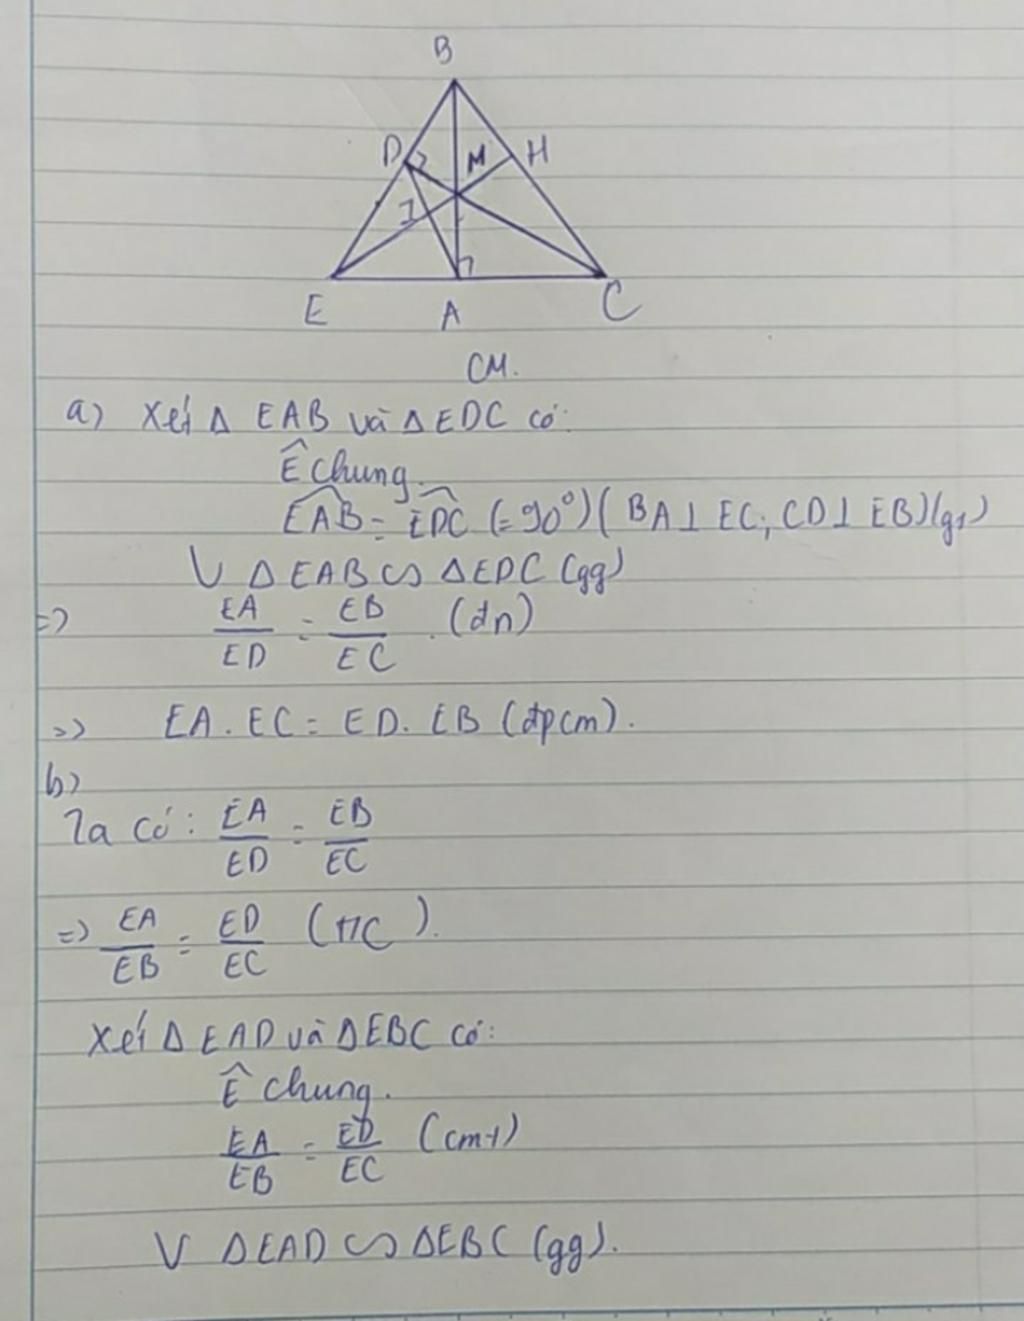 B
D
M
H
I
E
A
C
CM.
a) Xét Δ EAB và Δ EDC có:
Ê chung.
\widehat{EAB} = \widehat{EDC} (= 90°) ( BA ⊥ EC; CD ⊥ EB) (gt)
V Δ EAB ∽ Δ EDC (gg)
=> EA/ED = EB/EC . (đn)
=> EA . EC = ED . EB (đpcm).
b)
Ta có: EA/ED = EB/EC
=> EA/EB = ED/EC (t/c).
Xét Δ EAD và Δ EBC có:
Ê chung.
EA/EB = ED/EC (cmt)
V Δ EAD ∽ Δ EBC (gg).